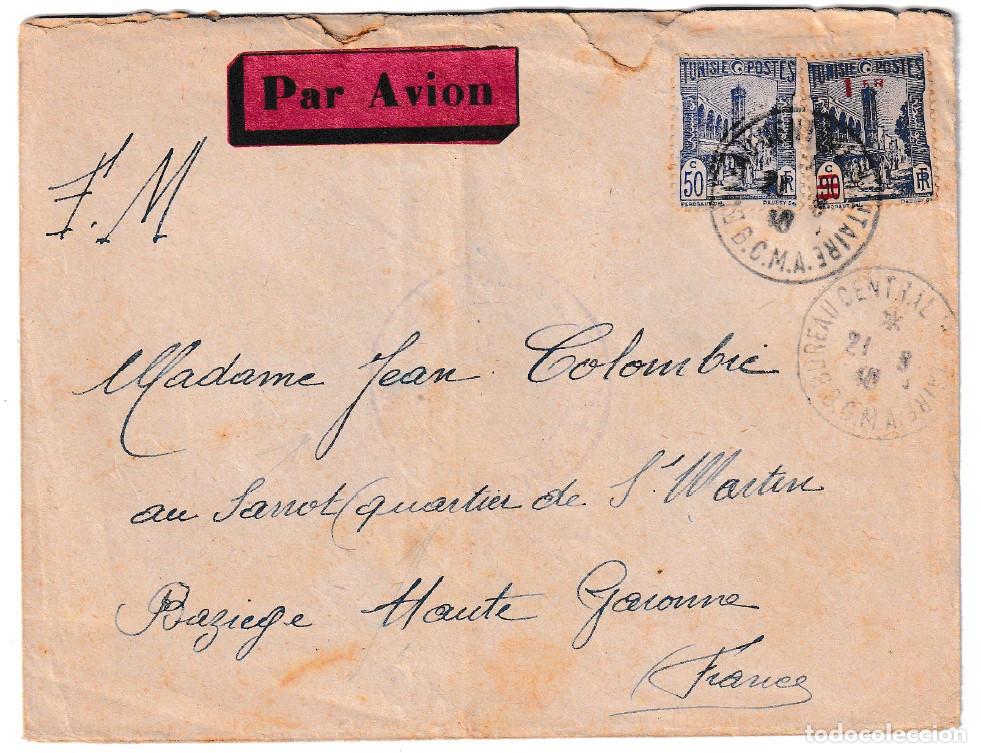 Par Avion
F.M
TUNISIE POSTES
TUNISIE POSTES
1 FR
C
50
RF
C
90
RF
B.C.M.A.
BUREAU CENTRAL
21 3
40
B.C.M.A.
Madame Jean Colombie
au Sarrot (quartier de St Martin
Baziege Haute Garonne
France
todocoleccion